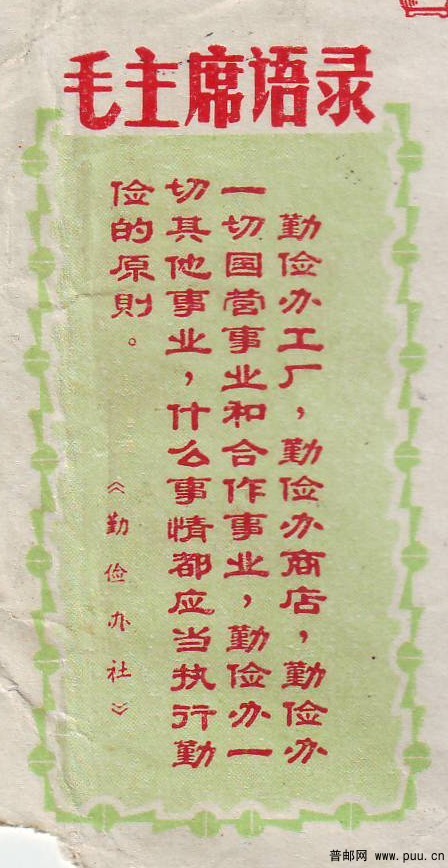 毛主席语录
勤俭办工厂，勤俭办商店，勤俭办
一切国营事业和合作事业，勤俭办一
切其他事业，什么事情都应当执行勤
俭的原则。
《勤俭办社》
普邮网 www.puu.cn